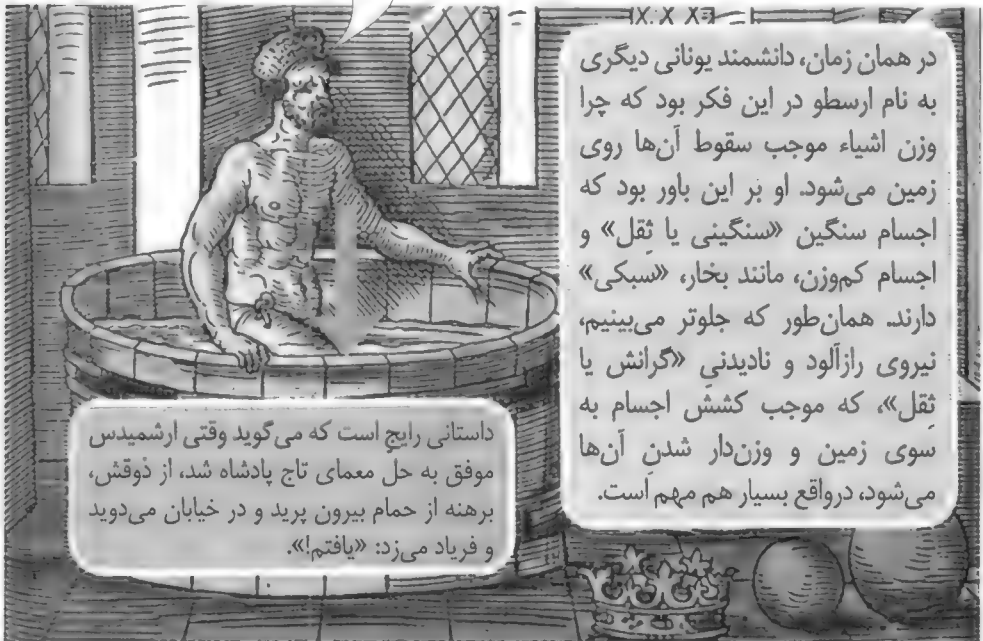 در همان زمان، دانشمند یونانی دیگری
به نام ارسطو در این فکر بود که چرا
وزن اشیاء موجب سقوط آن‌ها روی
زمین می‌شود. او بر این باور بود که
اجسام سنگین «سنگینی یا ثِقل» و
اجسام کم‌وزن، مانند بخار، «سبکی»
دارند. همان‌طور که جلوتر می‌بینیم،
نیروی رازآلود و نادیدنیِ «گرانش یا
ثِقل»، که موجب کشش اجسام به
سوی زمین و وزن‌دار شدنِ آن‌ها
می‌شود، درواقع بسیار هم مهم است.
داستانی رایج است که می‌گوید وقتی ارشمیدس
موفق به حل معمای تاج پادشاه شد، از ذوقش،
برهنه از حمام بیرون پرید و در خیابان می‌دوید
و فریاد می‌زد: «یافتم!».